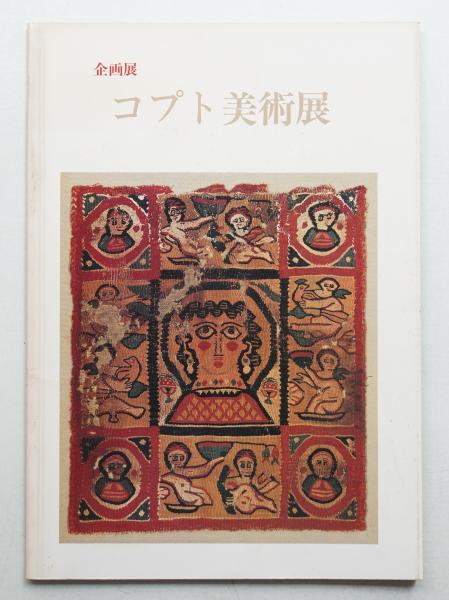 企画展
コプト美術展